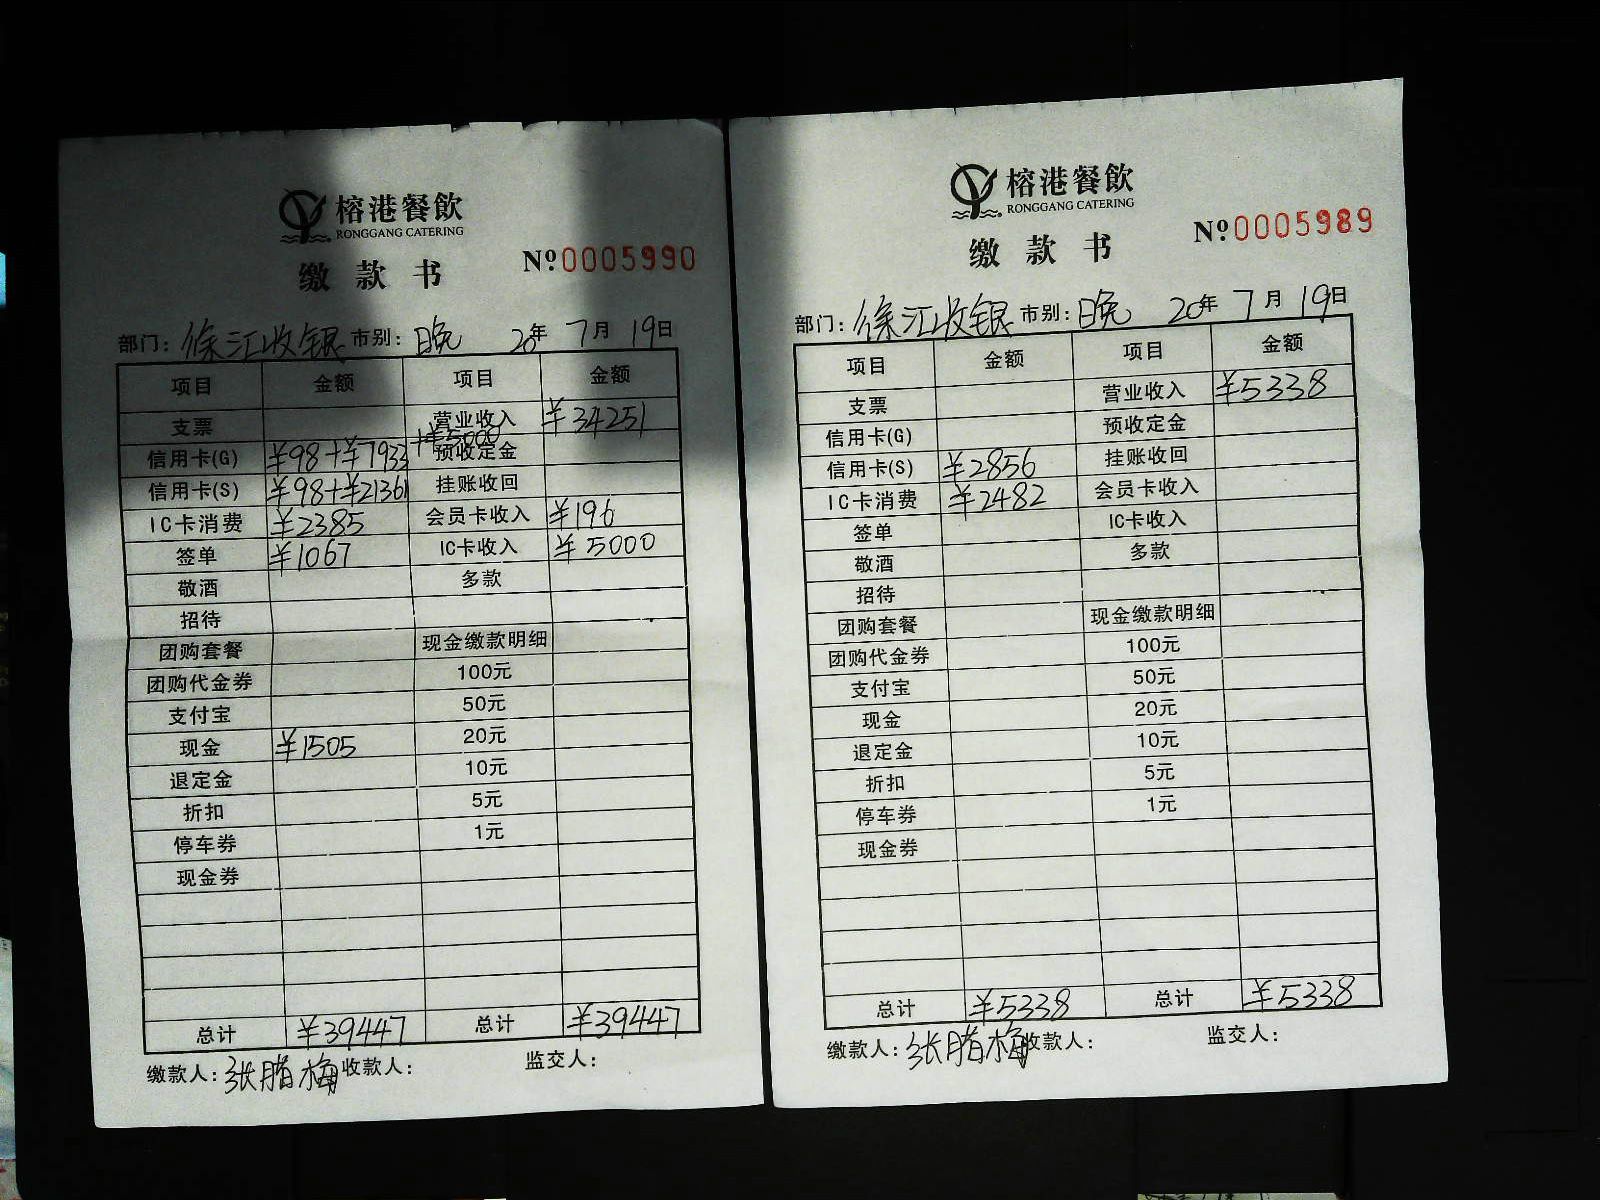 榕港餐飲
RONGGANG CATERING
缴款书
Nº0005990
部门: 徐汇收银 市别: 晚 20年 7月 19日
项目 金额 项目 金额
支票 营业收入 ¥34251
信用卡(G) ¥98+¥7933+¥5000 预收定金
信用卡(S) ¥98+¥21361 挂账收回
IC卡消费 ¥2385 会员卡收入 ¥196
签单 ¥1067 IC卡收入 ¥5000
敬酒 多款
招待
团购套餐 现金缴款明细
团购代金券 100元
支付宝 50元
现金 ¥1505 20元
退定金 10元
折扣 5元
停车券 1元
现金券
总计 ¥39447 总计 ¥39447
缴款人: 张腊梅 收款人: 监交人:
榕港餐飲
RONGGANG CATERING
缴款书
Nº0005989
部门: 徐汇收银 市别: 晚 20年 7月 19日
项目 金额 项目 金额
支票 营业收入 ¥5338
信用卡(G) 预收定金
信用卡(S) ¥2856 挂账收回
IC卡消费 ¥2482 会员卡收入
签单 IC卡收入
敬酒 多款
招待
团购套餐 现金缴款明细
团购代金券 100元
支付宝 50元
现金 20元
退定金 10元
折扣 5元
停车券 1元
现金券
总计 ¥5338 总计 ¥5338
缴款人: 张腊梅 收款人: 监交人: